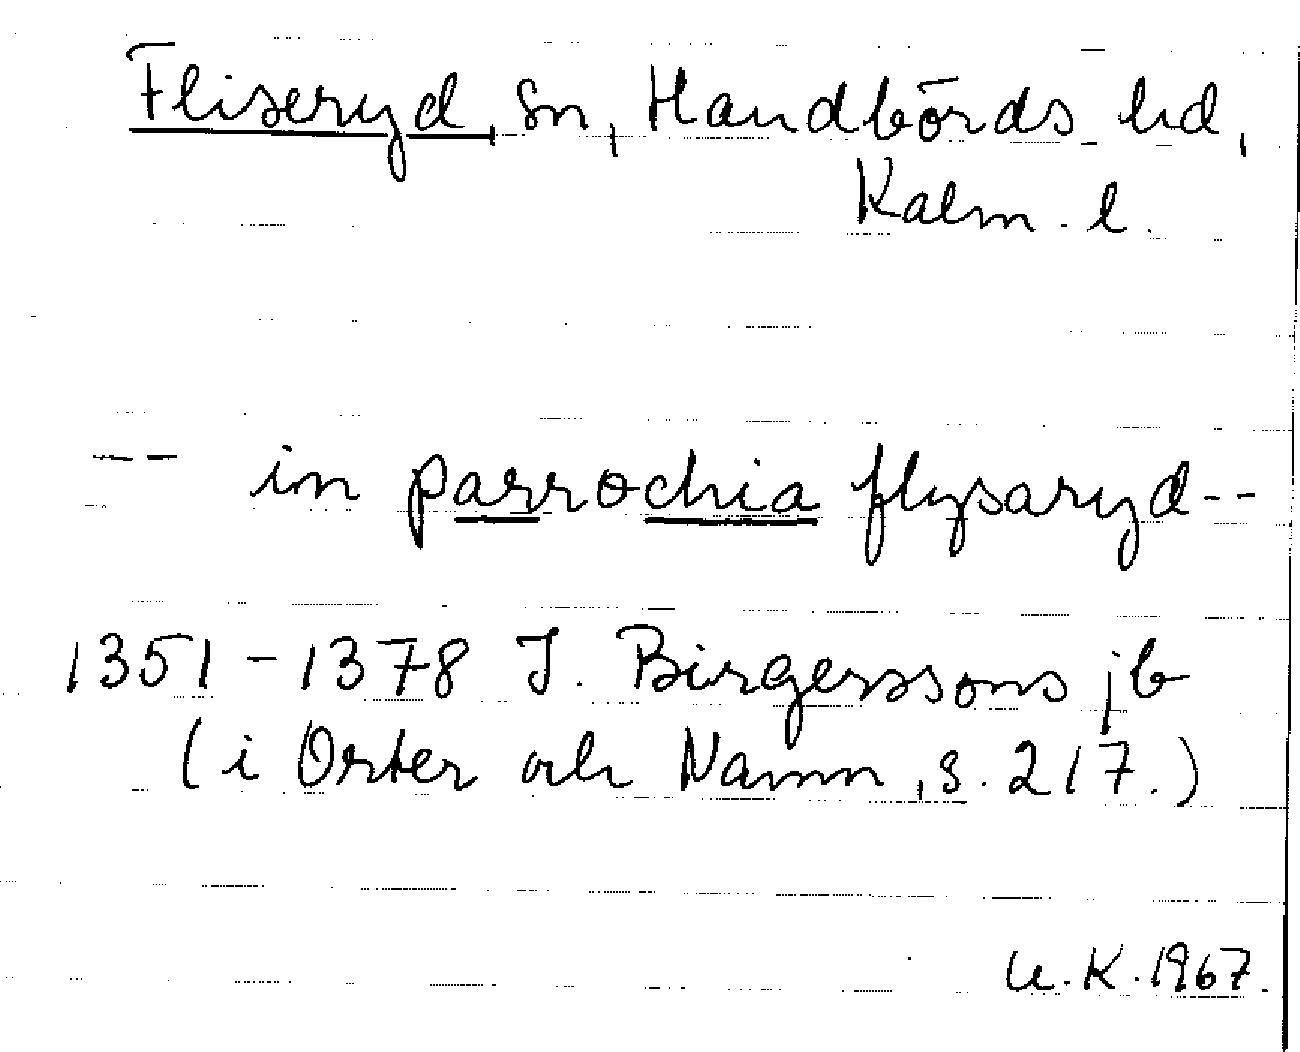 Fliseryd, sn, Handbörds hd,
Kalm. l.
-- in parrochia flysaryd--
1351-1378 J. Birgerssons jb
(i Orter och Namn, s. 217.)
U.K. 1967.